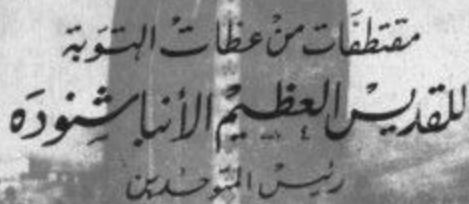 مقتطفَات منْ عظاتْ التوَبة
للقديسْ العظيمْ الأنبا شِنودَه
رئيسْ المتوَحدين